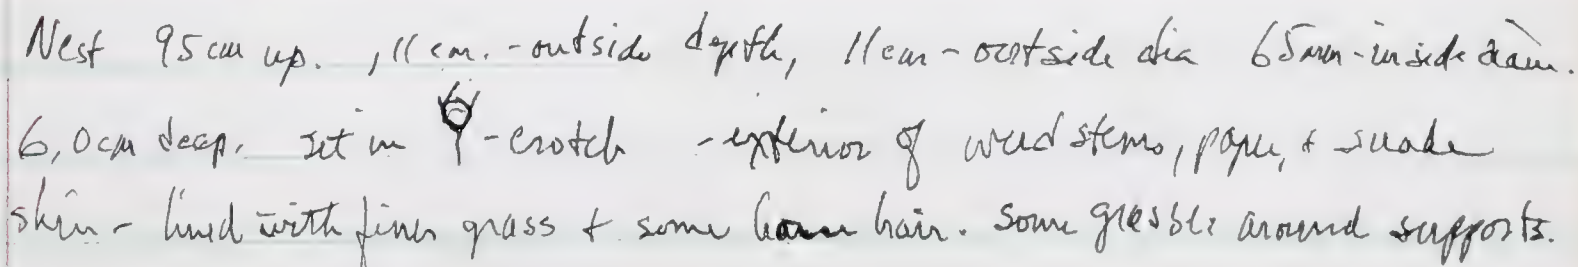 Nest 95cm up. , 11 cm. - outside depth, 11cm - outside dia 65mm - inside diam.
6,0cm deep. set in Y - crotch - exterior of weed stems, paper, + snake
skin - lined with finer grass + some hair. Some around supports.